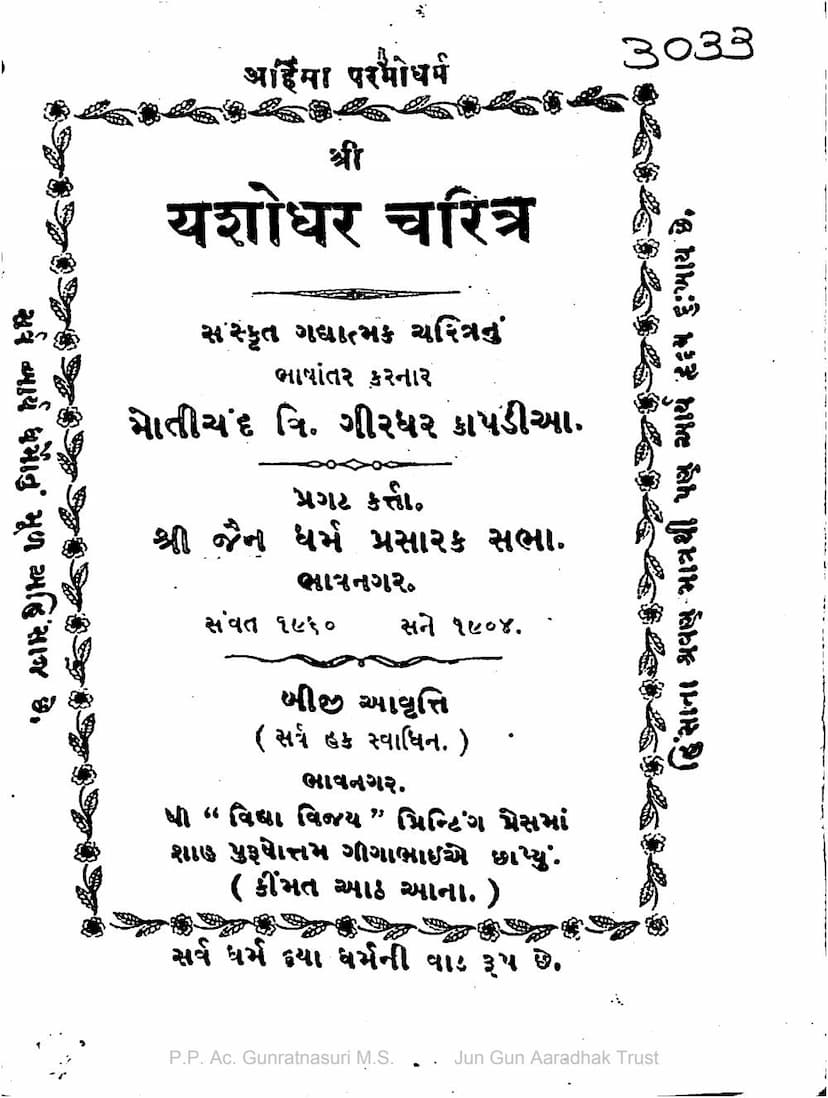 3033
અહિંસા પરમોધર્મ
શ્રી
યશોધર ચરિત્ર
સંસ્કૃત ગદ્યાત્મક ચરિત્રનું
ભાષાંતર કરનાર
મોતીચંદ ત્રિ. ગીરધર કાપડીઆ.
પ્રગટ કર્ત્તા.
શ્રી જૈન ધર્મ પ્રસારક સભા.
ભાવનગર.
સંવત ૧૯૬૦ સને ૧૯૦૪.
બીજી આવૃત્તિ
( સર્વ હક સ્વાધિન. )
ભાવનગર.
ધી “ વિદ્યા વિજય ” પ્રિન્ટિંગ પ્રેસમાં
શાહ પુરૂષોત્તમ ગીગાભાઈએ છાપ્યું.
( કીંમત આઠ આના. )
સર્વ ધર્મ દયા ધર્મની વાડ રૂપ છે.
સર્વ આર્ય ધર્મોનું મૂળ અહિંસાજ છે.
હિંસાના
P.P. Ac. Gunratnasuri M.S. Jun Gun Aaradhak Trust